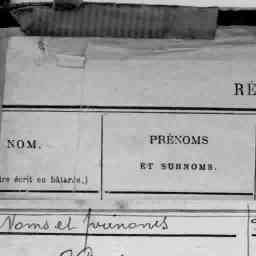 RÉ
NOM.
PRÉNOMS
ET SURNOMS.
ire écrit en bâtarde.)
Noms et prénoms